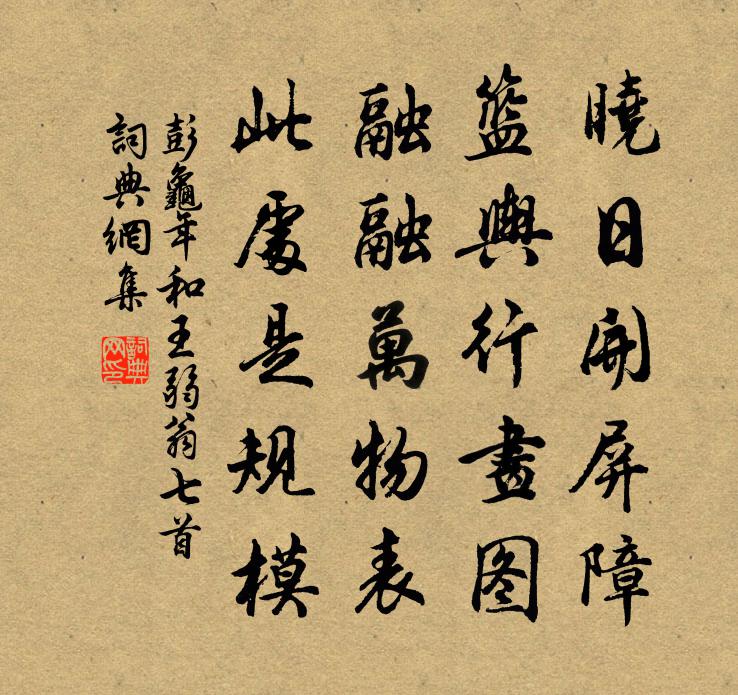 曉日開屏障
籃輿行畫图
融融萬物表
此處是规模
彭龜年和王弱翁七首
詞典網集
詞典
网印